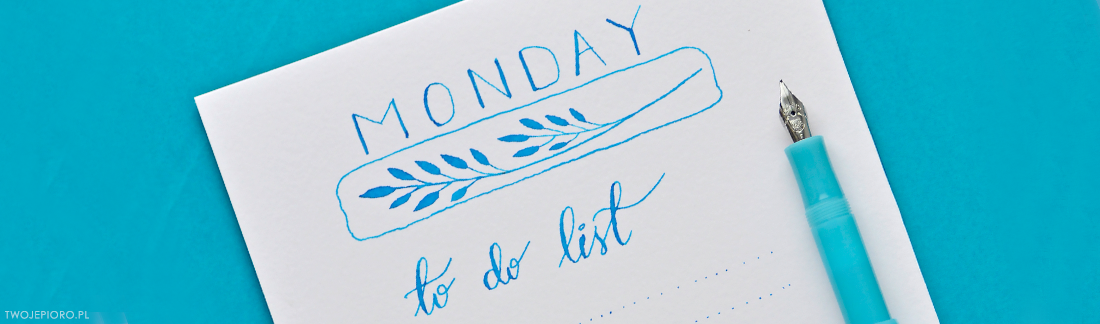 MONDAY
to do list
TWOJEPIORO.PL